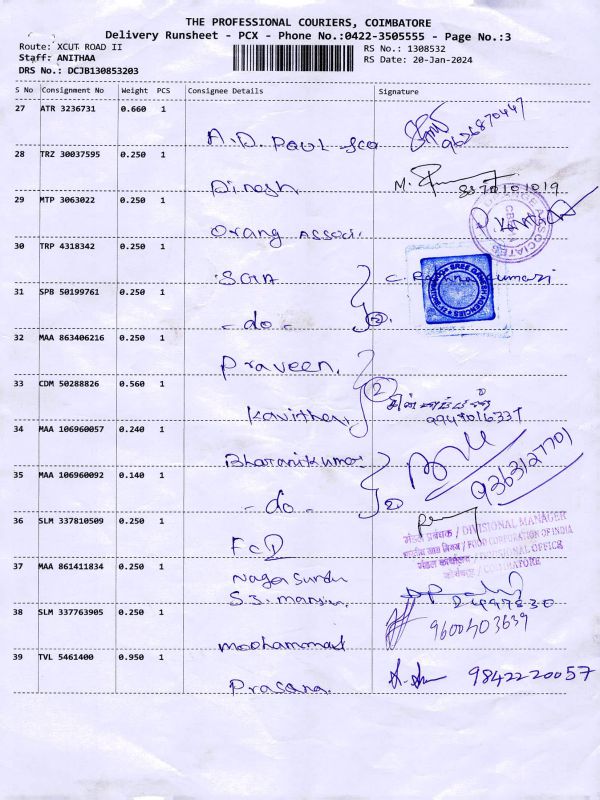 THE PROFESSIONAL COURIERS, COIMBATORE
Delivery Runsheet - PCX - Phone No.:0422-3505555 - Page No.:3
Route: XCUT ROAD II RS No.: 1308532
Staff: ANITHAA RS Date: 20-Jan-2024
DRS No.: DCJB130853203
S No Consignment No Weight PCS Consignee Details Signature
27 ATR 3236731 0.660 1
A.D. Paul &co 9626870447
28 TRZ 30037595 0.250 1
Dinesh M. 8870101019
29 MTP 3063022 0.250 1
Orang Associ.
30 TRP 4318342 0.250 1
SGA
31 SPB 50199761 0.250 1
- do - 2
SREE GANESH AGENCIES
32 MAA 863406216 0.250 1
Praveen.
33 CDM 50288826 0.560 1
2
Kavitha
34 MAA 106960057 0.240 1
Bharanikumar
35 MAA 106960092 0.140 1
9363127701
- do - 2
36 SLM 337810509 0.250 1
मंडल प्रबंधक / DIVISIONAL MANAGER
भारतीय खाद्य निगम / FOOD CORPORATION OF INDIA
मंडल कार्यालय / DIVISIONAL OFFICE
कोयंबटूर / COIMBATORE
FCI
37 MAA 861411834 0.250 1
38 SLM 337763905 0.250 1
9600403639
moohammad
39 TVL 5461400 0.950 1
Prasana. 9842220057